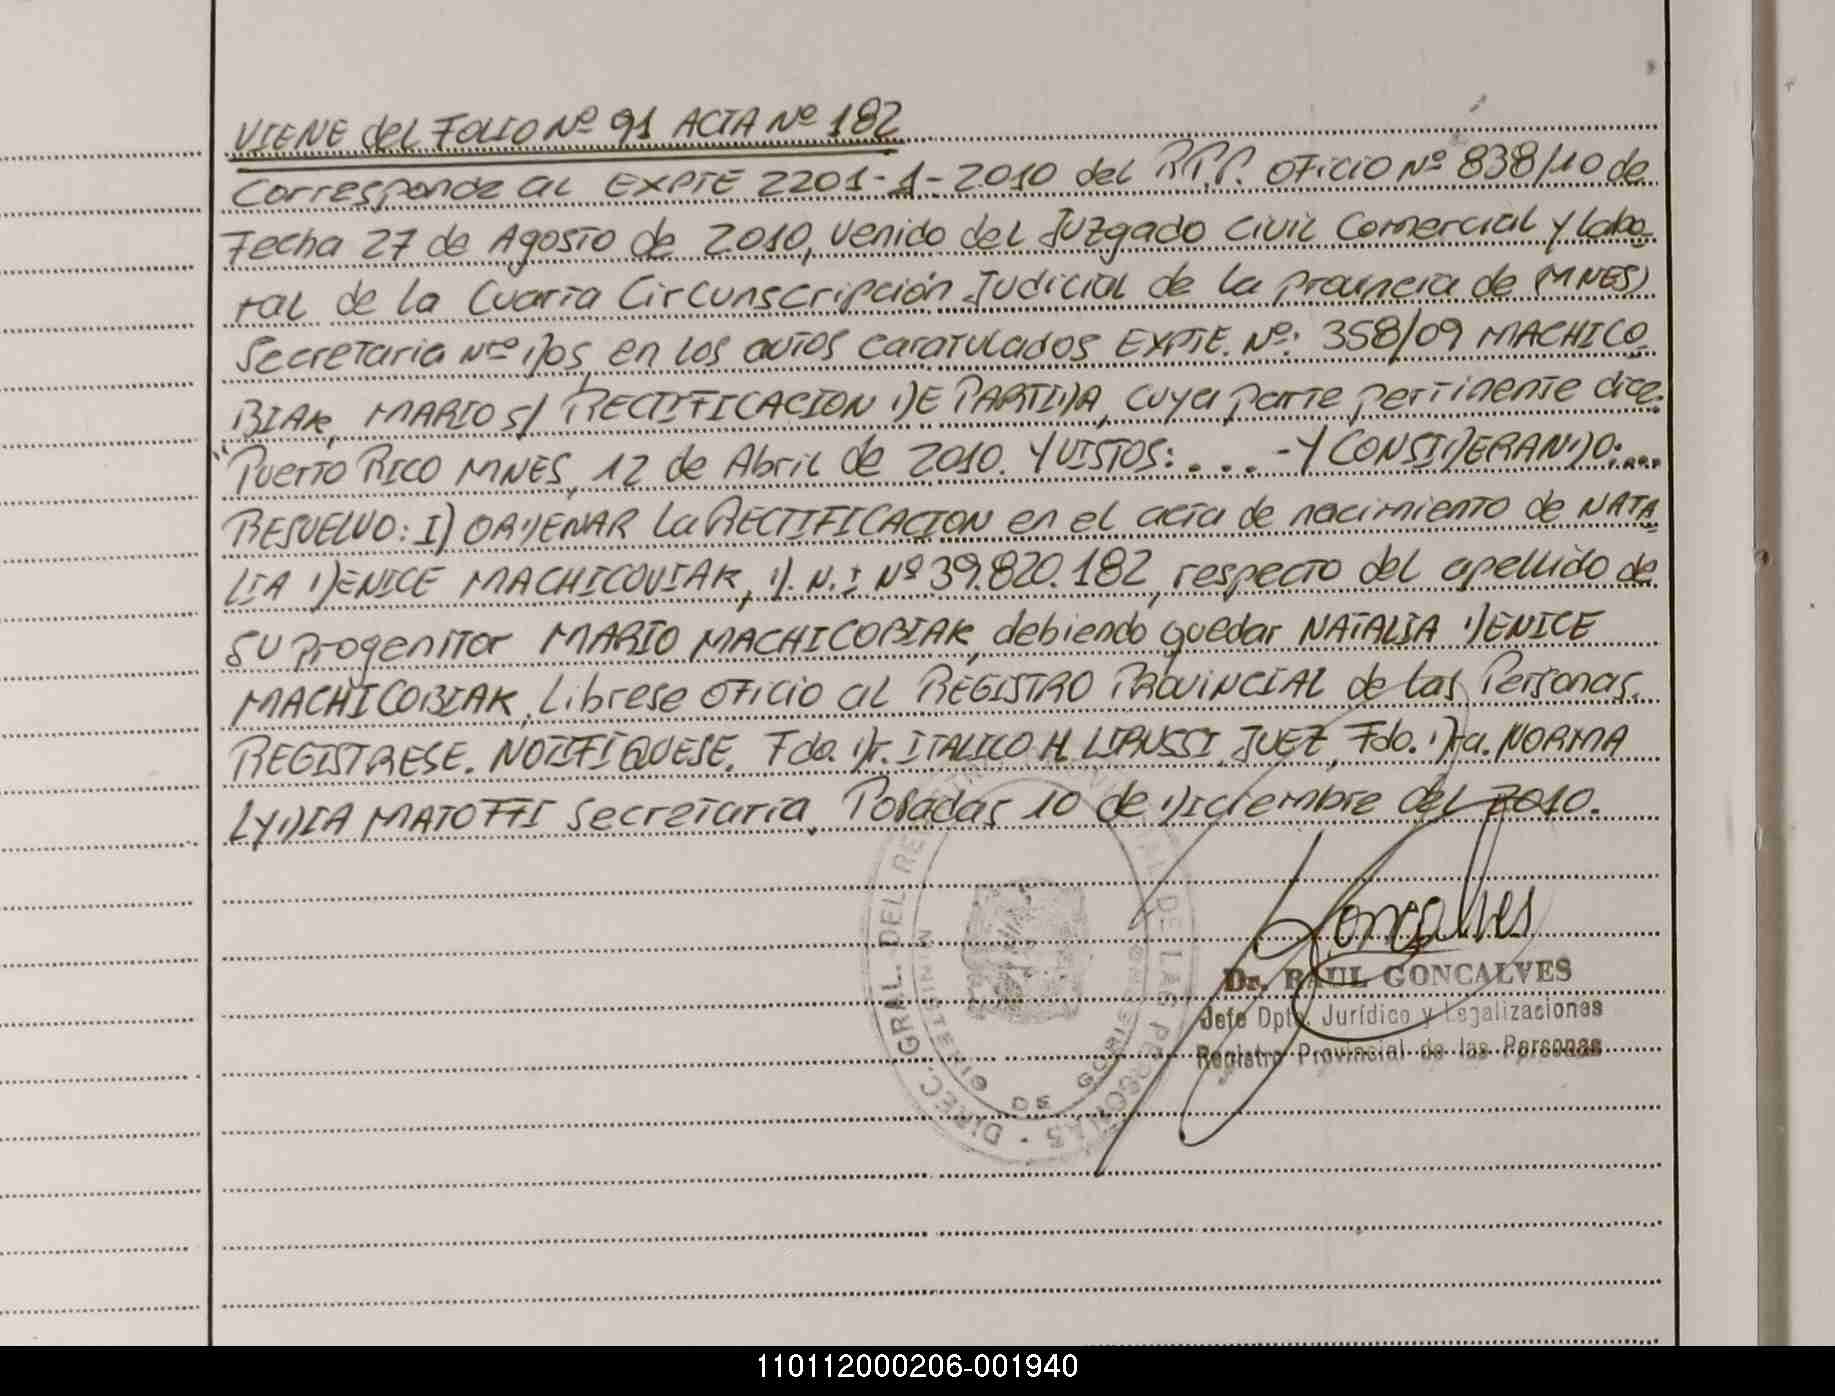 VIENE del FOLIO Nº 91 ACTA Nº 182
Corresponde al EXPTE 2201-1-2010 del R.P.P. OFICIO Nº 838/10 de
Fecha 27 de Agosto de 2010, venido del Juzgado Civil Comercial y Labo-
ral de la Cuarta Circunscripción Judicial de la Provincia de (MNES)
Secretaria Nº DOS, en los autos caratulados EXPTE. Nº: 358/09 MACHICO-
BIAK, MARIO S/ RECTIFICACION DE PARTIDA, cuya parte pertinente dice:
"Puerto Rico MNES, 12 de Abril de 2010. Y VISTOS: . . . -Y CONSIDERANDO:...
RESUELVO: I) ORDENAR La RECTIFICACION en el acta de nacimiento de NATA
LIA DENICE MACHICOVIAK, D.N.I Nº 39.820.182, respecto del apellido de
su progenitor MARIO MACHICOBIAK, debiendo quedar NATALIA DENICE
MACHICOBIAK. Librese oficio al REGISTRO PROVINCIAL de las Personas.
REGISTRESE. NOTIFÍQUESE. Fdo. Dr. ITALICO H. LIRUSSI JUEZ, Fdo. Dra. NORMA
LYDIA MATOFFI Secretaria. Posadas 10 de Diciembre del 2010.
Goncalves
Dr. RAUL GONCALVES
Jefe Dpto. Jurídico y Legalizaciones
Registro Provincial de las Personas
DIREC. GRAL. DEL RE DE LAS PERSONAS
MINISTERIO DE GOBIERNO
110112000206-001940